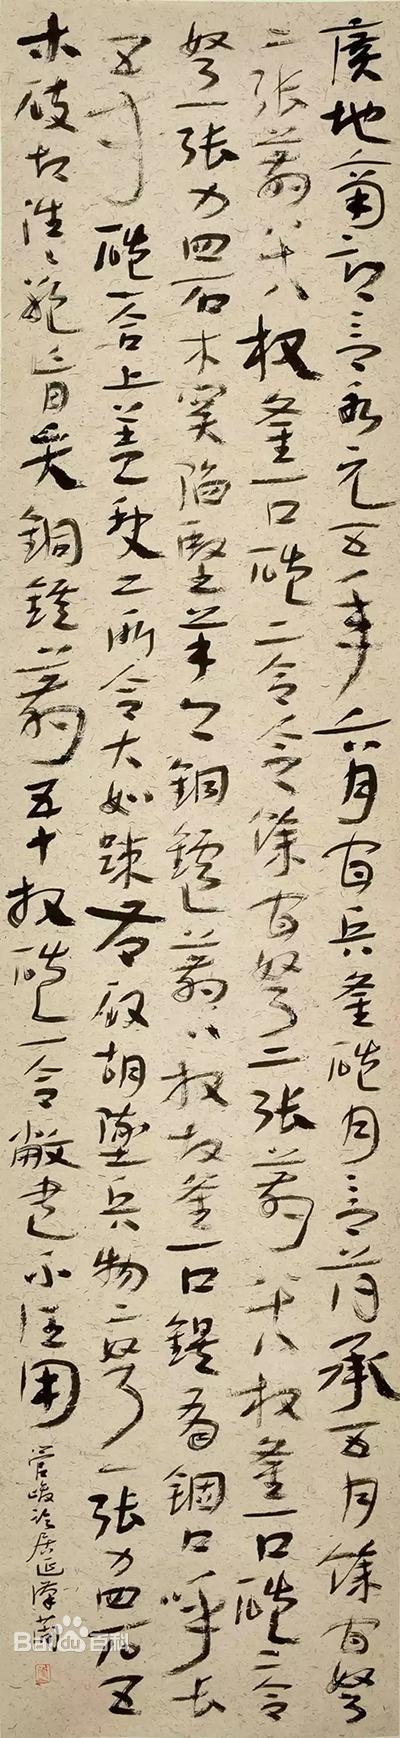 廣地南部言永元五年六月官兵釜磑月言簿承五月餘官弩
二張箭八十八枚釜一口磑二合今餘官弩二張箭八十八枚釜一口磑二合
弩一張力四石木陷堅羊頭銅鍭箭八枚故釜一口鍉有錮口呼長
五寸磑一合上蓋缺二所各大如踈右破胡隧兵物弩一張力四石五
木破往往絕盲矢銅鍭箭五十枚磑一合敝盡不任用
管峻臨居延漢簡
Baidu百科